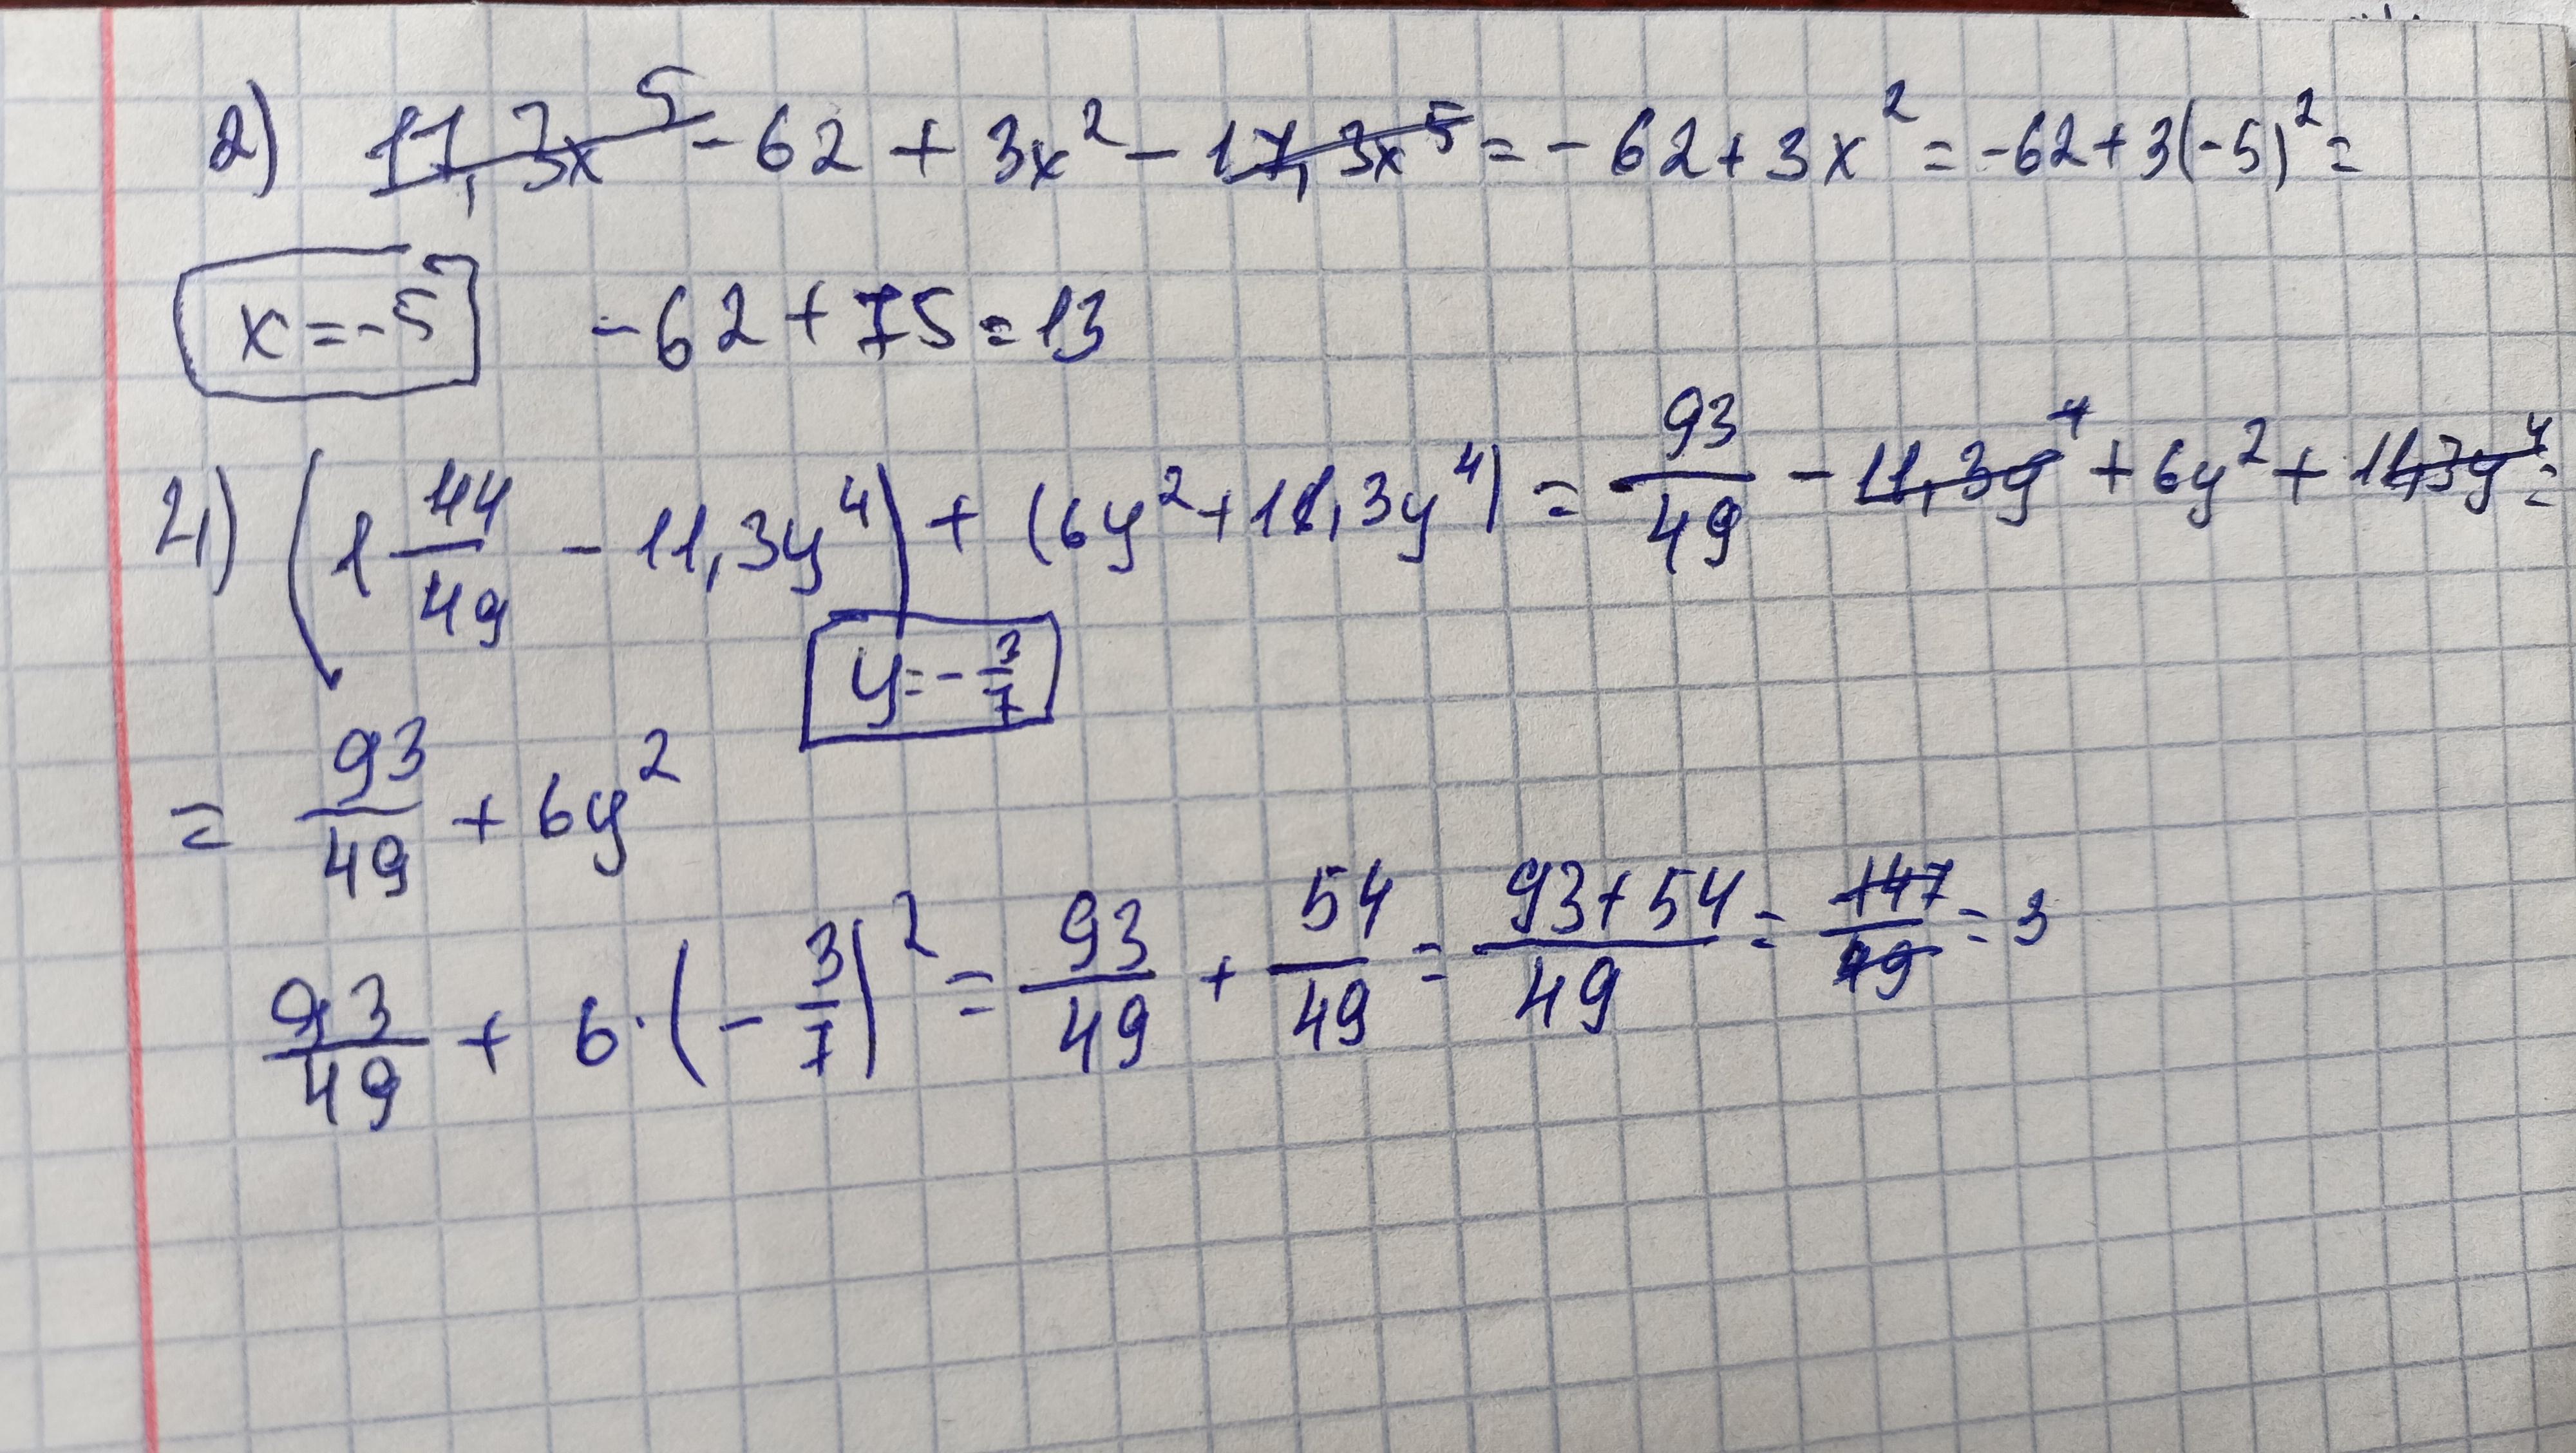 2) 17,3x⁵ - 62 + 3x² - 17,3x⁵ = - 62 + 3x² = -62 + 3(-5)² =
x = -5 - 62 + 75 = 13
4) (1 44/49 - 11,3y⁴) + (6y² + 11,3y⁴) = 93/49 - 11,3y⁴ + 6y² + 11,3y⁴ =
y = - 3/7
= 93/49 + 6y²
93/49 + 6·(- 3/7)² = 93/49 + 54/49 = 93+54/49 = 147/49 = 3